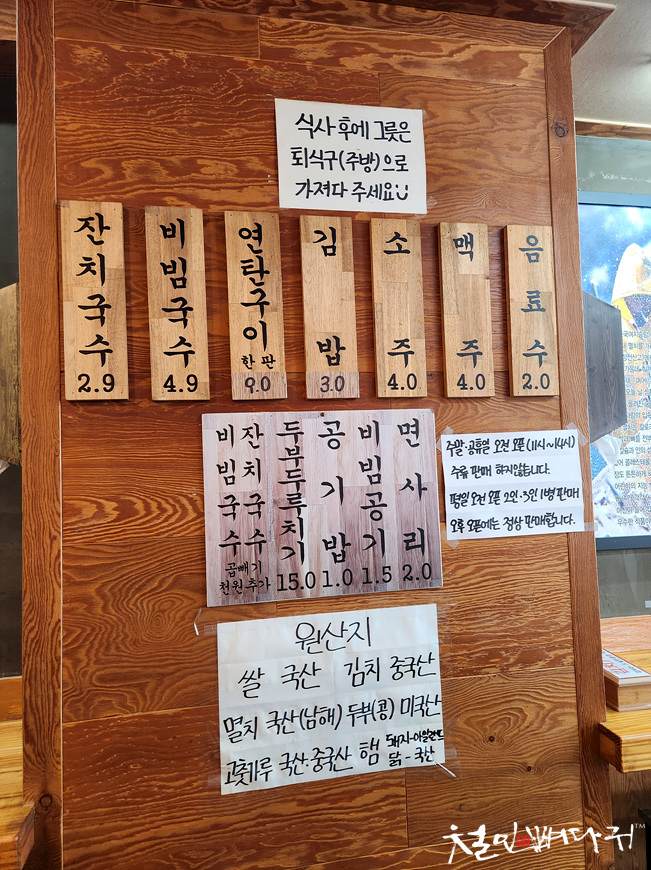 식사 후에 그릇은
퇴식구(주방)으로
가져다 주세요
잔치국수 2.9
비빔국수 4.9
연탄구이 한판 9.0
김밥 3.0
소주 4.0
맥주 4.0
음료수 2.0
비빔국수 잔치국수 곱빼기 천원추가
두부두루치기 15.0
공기밥 1.0
비빔공기 1.5
면사리 2.0
주말·공휴일 오전 오픈(11시~14시)
주류 판매 하지않습니다.
평일 오전 오픈 2인·3인 1병 판매
오후 오픈에는 정상 판매합니다.
원산지
쌀 국산 김치 중국산
멸치 국산(남해) 두부(콩) 미국산
고춧가루 국산·중국산 햄 돼지-아일랜드
닭-국산
철인뻐다귀™